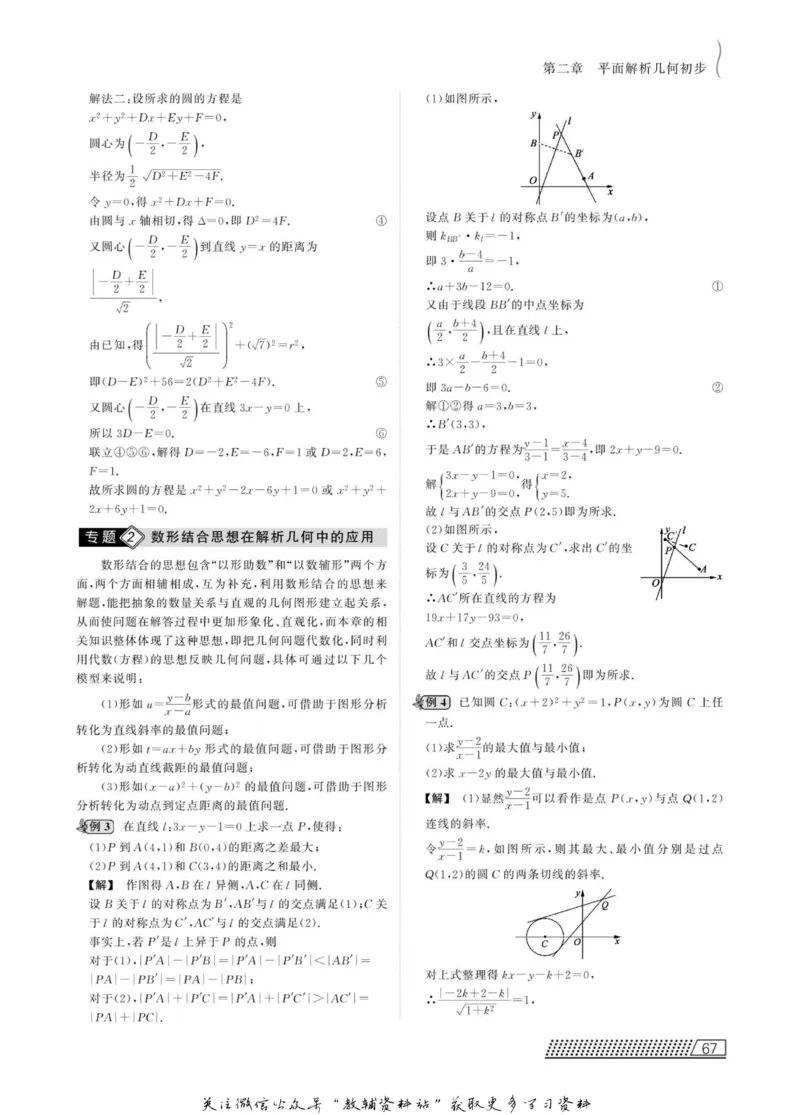 第二章 平面解析几何初步
解法二:设所求的圆的方程是
x²+y²+Dx+Ey+F=0,
圆心为(-D/2,-E/2),
半径为1/2 √(D²+E²-4F).
令 y=0,得 x²+Dx+F=0.
由圆与 x 轴相切,得 Δ=0,即 D²=4F. ④
又圆心(-D/2,-E/2)到直线 y=x 的距离为
|-D/2+E/2|/√2,
由已知,得(|-D/2+E/2|/√2)²+(√7)²=r²,
即(D-E)²+56=2(D²+E²-4F). ⑤
又圆心(-D/2,-E/2)在直线 3x-y=0 上,
所以 3D-E=0. ⑥
联立④⑤⑥,解得 D=-2,E=-6,F=1 或 D=2,E=6,
F=1.
故所求圆的方程是 x²+y²-2x-6y+1=0 或 x²+y²+
2x+6y+1=0.
专题 2 数形结合思想在解析几何中的应用
数形结合的思想包含“以形助数”和“以数辅形”两个方
面,两个方面相辅相成,互为补充,利用数形结合的思想来
解题,能把抽象的数量关系与直观的几何图形建立起关系,
从而使问题在解答过程中更加形象化、直观化,而本章的相
关知识整体体现了这种思想,即把几何问题代数化,同时利
用代数(方程)的思想反映几何问题,具体可通过以下几个
模型来说明:
(1)形如 u=(y-b)/(x-a)形式的最值问题,可借助于图形分析
转化为直线斜率的最值问题;
(2)形如 t=ax+by 形式的最值问题,可借助于图形分
析转化为动直线截距的最值问题;
(3)形如(x-a)²+(y-b)² 的最值问题,可借助于图形
分析转化为动点到定点距离的最值问题.
例 3 在直线 l:3x-y-1=0 上求一点 P,使得:
(1)P 到 A(4,1)和 B(0,4)的距离之差最大;
(2)P 到 A(4,1)和 C(3,4)的距离之和最小.
【解】 作图得 A,B 在 l 异侧,A,C 在 l 同侧.
设 B 关于 l 的对称点为 B′,AB′与 l 的交点满足(1);C 关
于 l 的对称点为 C′,AC′与 l 的交点满足(2).
事实上,若 P′是 l 上异于 P 的点,则
对于(1),|P′A|-|P′B|=|P′A|-|P′B′|<|AB′|=
|PA|-|PB′|=|PA|-|PB|;
对于(2),|P′A|+|P′C|=|P′A|+|P′C′|>|AC′|=
|PA|+|PC|.
(1)如图所示,
y
l
P
B
B′
A
O
x
设点 B 关于 l 的对称点 B′的坐标为(a,b),
则 k_BB′·k_l=-1,
即 3·(b-4)/a=-1,
∴a+3b-12=0. ①
又由于线段 BB′的中点坐标为
(a/2,(b+4)/2),且在直线 l 上,
∴3×a/2-(b+4)/2-1=0,
即 3a-b-6=0. ②
解①②得 a=3,b=3,
∴B′(3,3),
于是 AB′的方程为(y-1)/(3-1)=(x-4)/(3-4),即 2x+y-9=0.
解{3x-y-1=0, 2x+y-9=0, 得{x=2, y=5.
故 l 与 AB′的交点 P(2,5)即为所求.
(2)如图所示,
设 C 关于 l 的对称点为 C′,求出 C′的坐
标为(3/5,24/5).
y
l
C′
C
P
A
O
x
∴AC′所在直线的方程为
19x+17y-93=0,
AC′和 l 交点坐标为(11/7,26/7).
故 l 与 AC′的交点 P(11/7,26/7)即为所求.
例 4 已知圆 C:(x+2)²+y²=1,P(x,y)为圆 C 上任
一点.
(1)求(y-2)/(x-1)的最大值与最小值;
(2)求 x-2y 的最大值与最小值.
【解】 (1)显然(y-2)/(x-1)可以看作是点 P(x,y)与点 Q(1,2)
连线的斜率.
令(y-2)/(x-1)=k,如图所示,则其最大、最小值分别是过点
Q(1,2)的圆 C 的两条切线的斜率.
y
Q
C
O
x
对上式整理得 kx-y-k+2=0,
∴|-2k+2-k|/√(1+k²)=1,
67
关注微信公众号“教辅资料站”获取更多学习资料